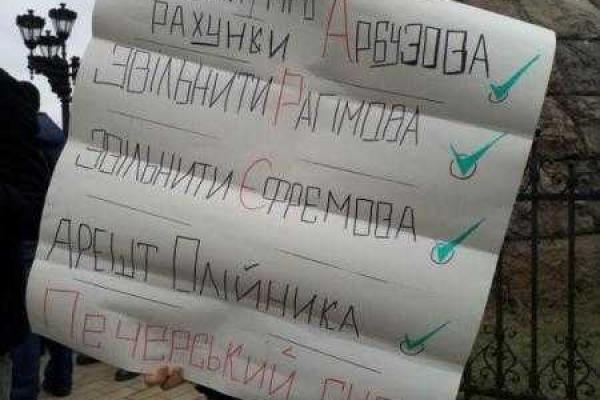 РАХУНКИ АРБУЗОВА
ЗВІЛЬНИТИ РАГІМОВА
ЗВІЛЬНИТИ ЄФРЕМОВА
АРЕШТ ОЛІЙНИКА
ПЕЧЕРСЬКИЙ